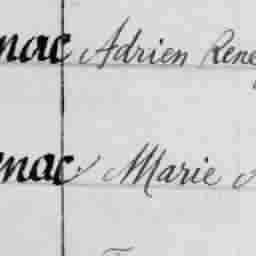 nac Adrien René
nac Marie